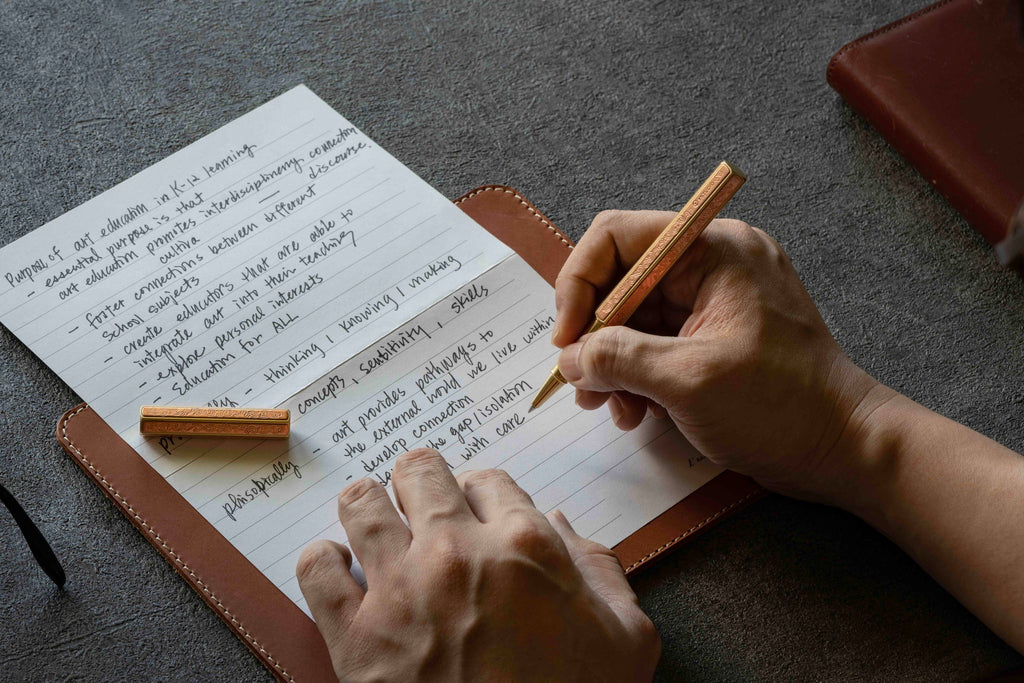 Purpose of art education in K-12 learning
- essential purpose is that
art education promotes interdisciplinary connection
cultiva
- foster connections between different discourse.
school subjects
- create educators that are able to
integrate art into their teaching
- explore personal interests
- Education for ALL
- thinking / knowing / making
concepts, sensitivity, skills
plnisoptically - art provides pathways to
the external world we live within
- develop connection
the gap/isolation
with care